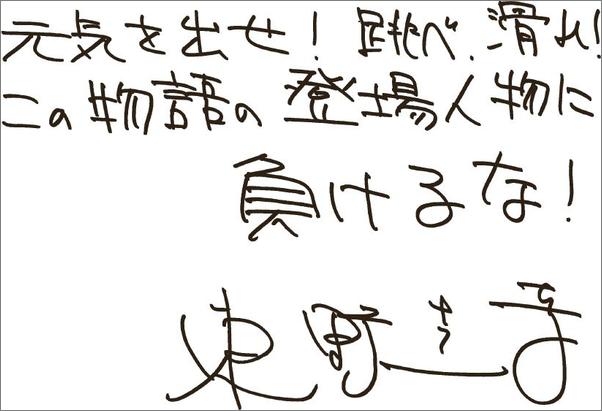 元気を出せ！跳べ、滑れ！
この物語の登場人物に
負けるな！
東野